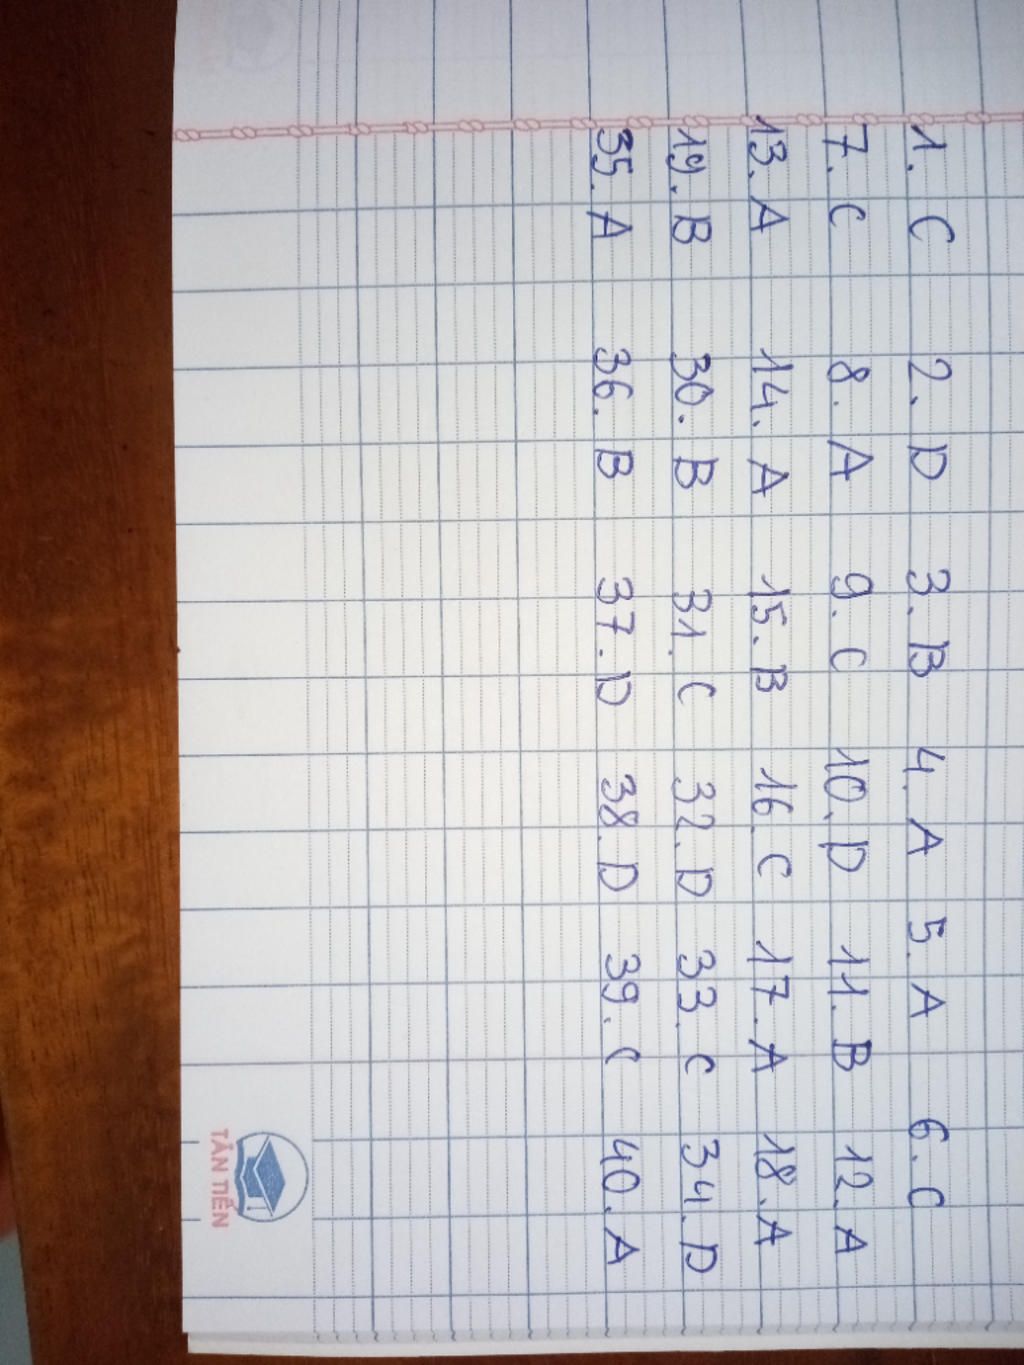 1. C 2. D 3. B 4. A 5. A 6. C
7. C 8. A 9. C 10. D 11. B 12. A
13. A 14. A 15. B 16. C 17. A 18. A
19. B 30. B 31. C 32. D 33. C 34. D
35. A 36. B 37. D 38. D 39. C 40. A
TÂN TIẾN